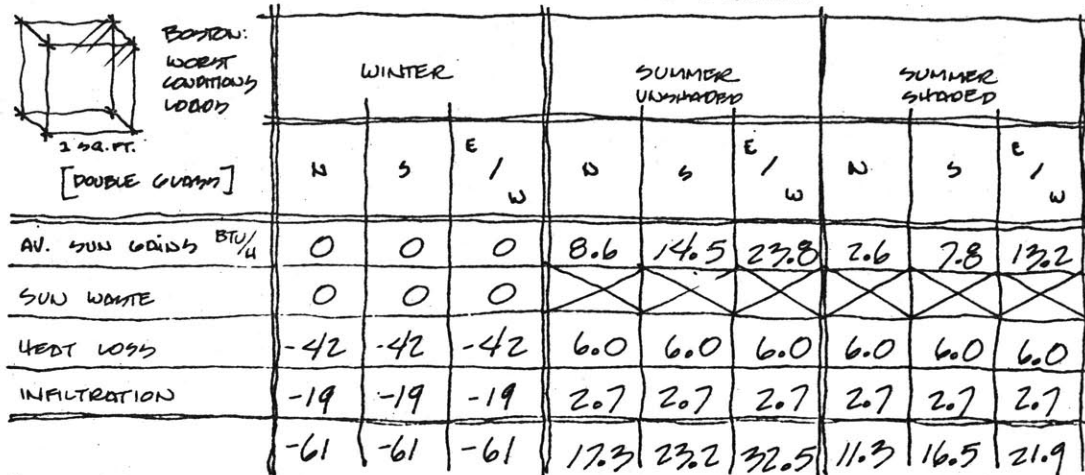 BOSTON:
WORST
CONDITIONS
LOADS
1 SQ.FT.
[DOUBLE GLASS]
WINTER
SUMMER
UNSHADED
SUMMER
SHADED
N S E/W N S E/W N S E/W
AV. SUN GAINS BTU/H 0 0 0 8.6 14.5 23.8 2.6 7.8 13.2
SUN WASTE 0 0 0
HEAT LOSS -42 -42 -42 6.0 6.0 6.0 6.0 6.0 6.0
INFILTRATION -19 -19 -19 2.7 2.7 2.7 2.7 2.7 2.7
-61 -61 -61 17.3 23.2 32.5 11.3 16.5 21.9